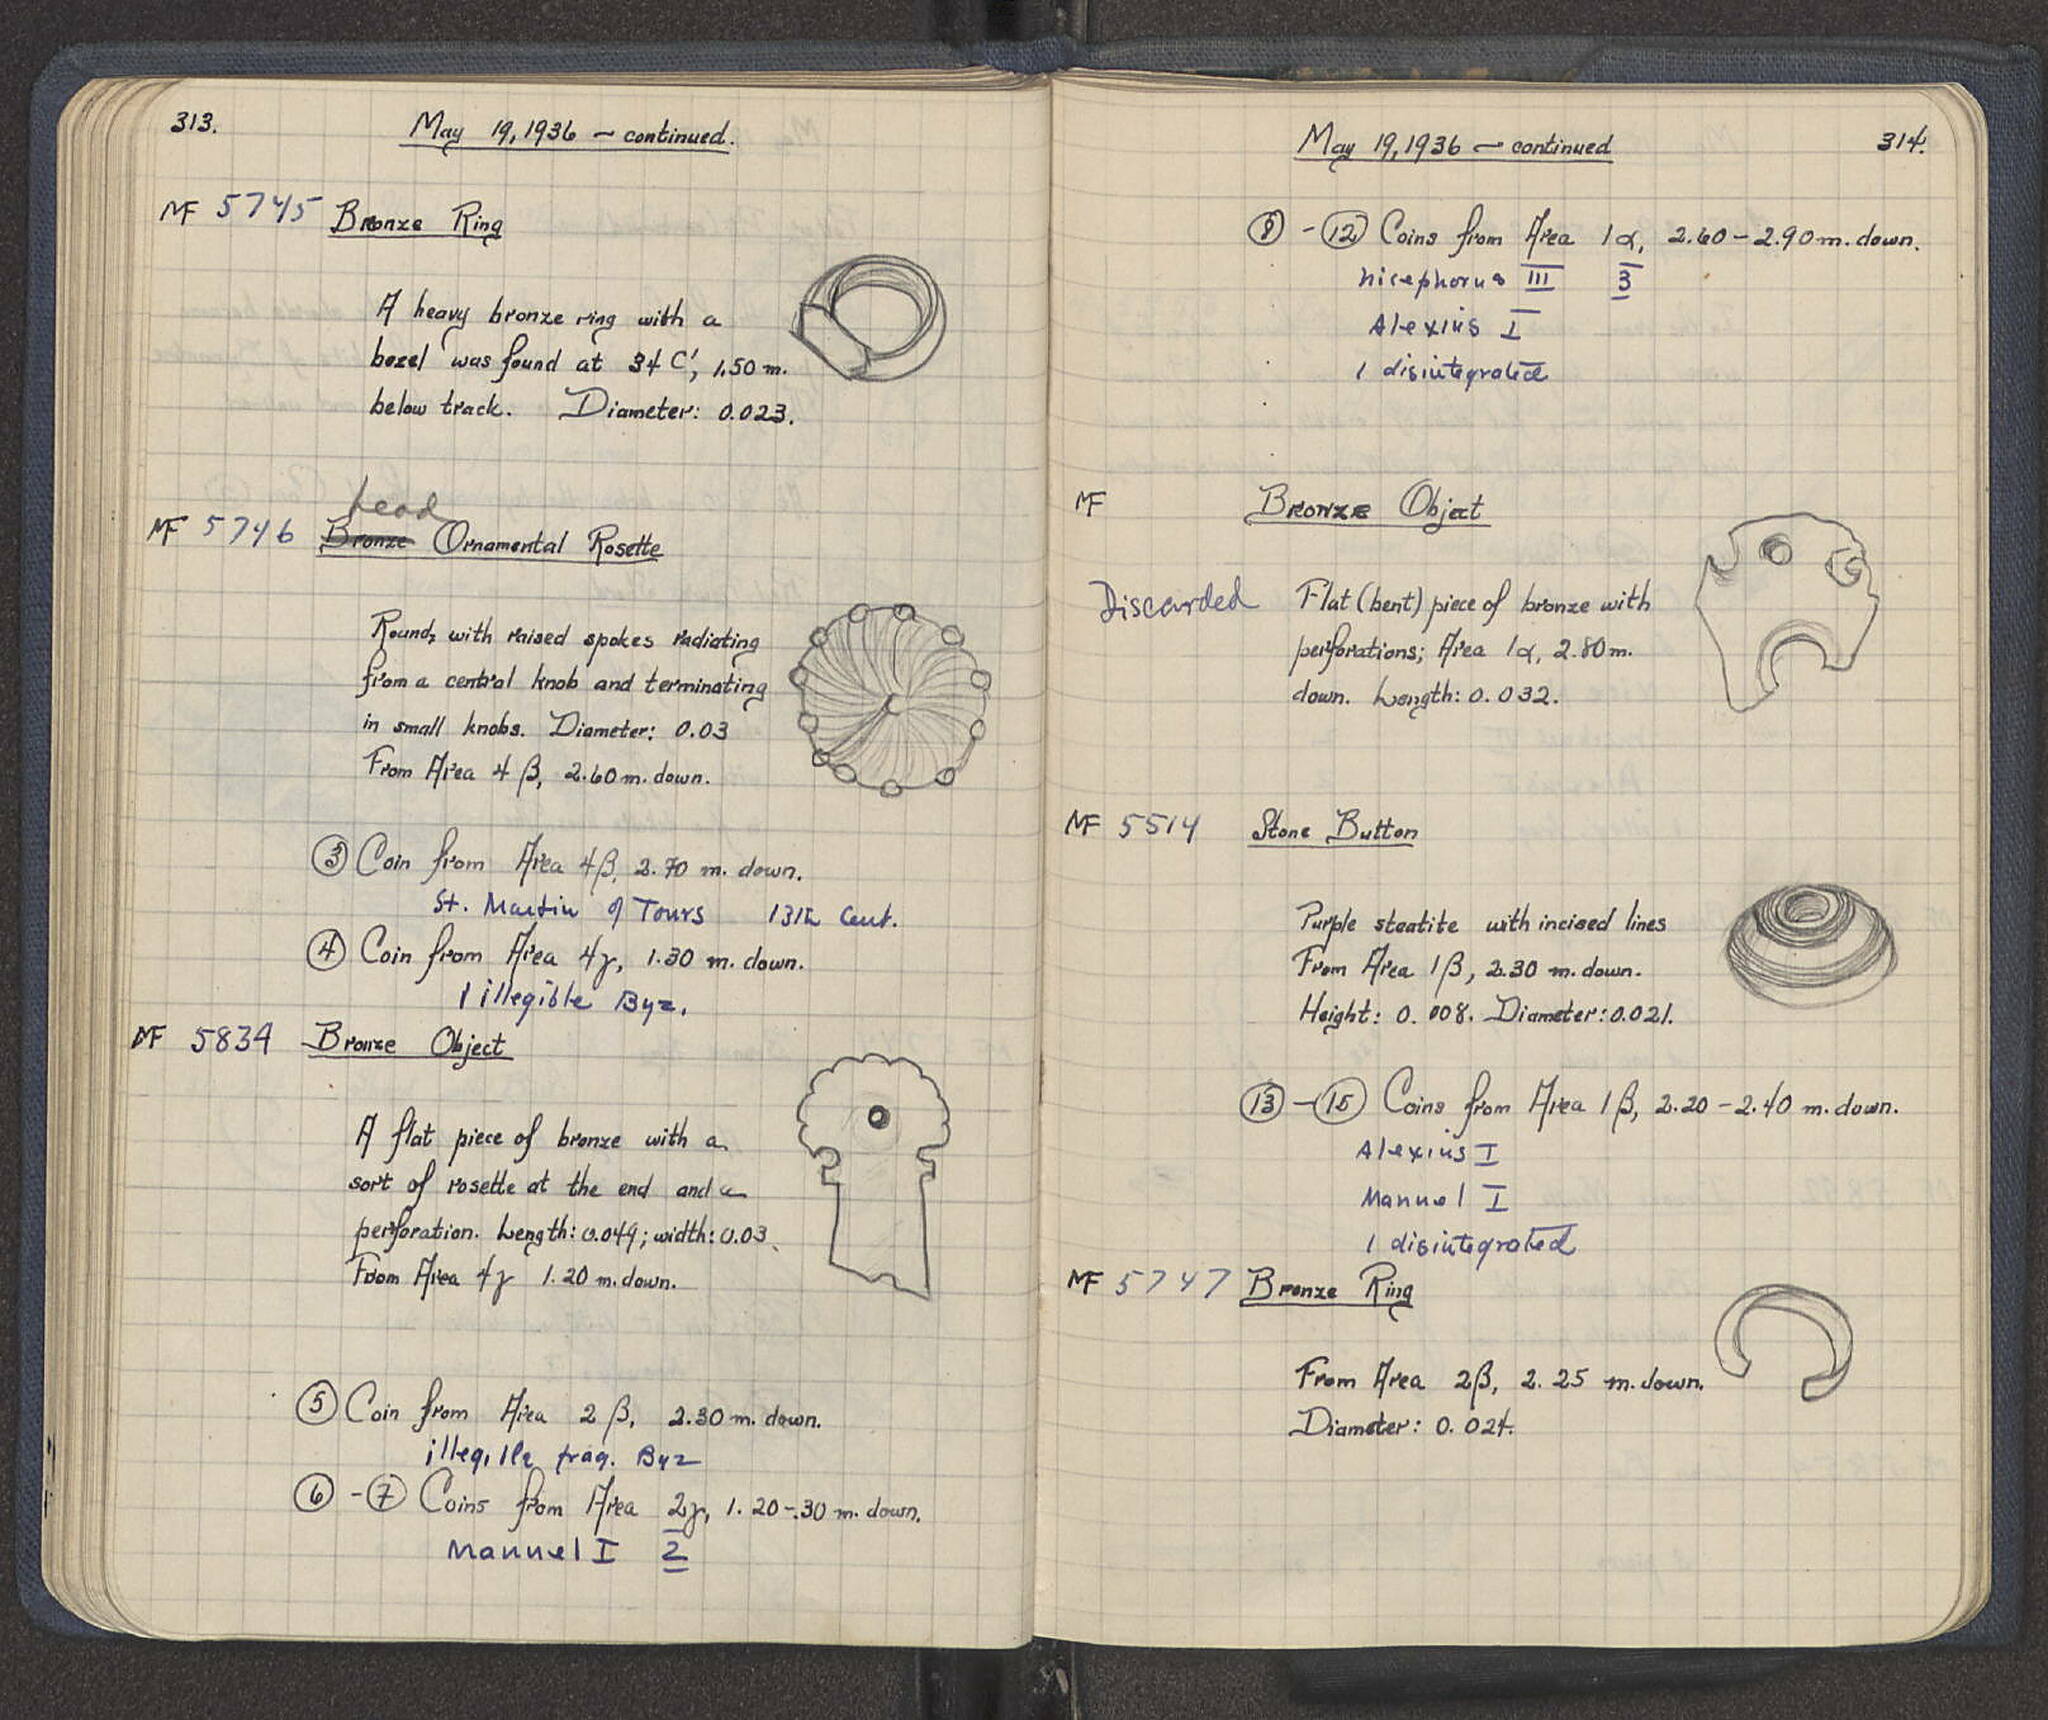 313.
May 19, 1936 – continued.
MF 5745 Bronze Ring
A heavy bronze ring with a
bezel was found at 34 C', 1.50 m.
below track. Diameter: 0.023.
Lead
MF 5746 Bronze Ornamental Rosette
Round, with raised spokes radiating
from a central knob and terminating
in small knobs. Diameter: 0.03
From Area 4 β, 2.60 m. down.
③ Coin from Area 4β, 2.70 m. down.
St. Martin of Tours 13th Cent.
④ Coin from Area 4γ, 1.30 m. down.
1 illegible Byz.
MF 5834 Bronze Object
A flat piece of bronze with a
sort of rosette at the end and a
perforation. Length: 0.049; width: 0.03.
From Area 4γ 1.20 m. down.
⑤ Coin from Area 2 β, 2.30 m. down.
illegible frag. Byz
⑥ – ⑦ Coins from Area 2γ, 1.20 – .30 m. down.
Manuel I 2
May 19, 1936 – continued
314.
⑧ – ⑫ Coins from Area 1α, 2.60 – 2.90 m. down.
Nicephorus III 3
Alexius I
1 disintegrated
MF Bronze Object
Discarded Flat (bent) piece of bronze with
perforations; Area 1α, 2.80 m.
down. Length: 0.032.
MF 5514 Stone Button
Purple steatite with incised lines
From Area 1β, 2.30 m. down.
Height: 0.008. Diameter: 0.021.
⑬ – ⑮ Coins from Area 1β, 2.20 – 2.40 m. down.
Alexius I
Manuel I
1 disintegrated
MF 5747 Bronze Ring
From Area 2β, 2.25 m. down.
Diameter: 0.024.